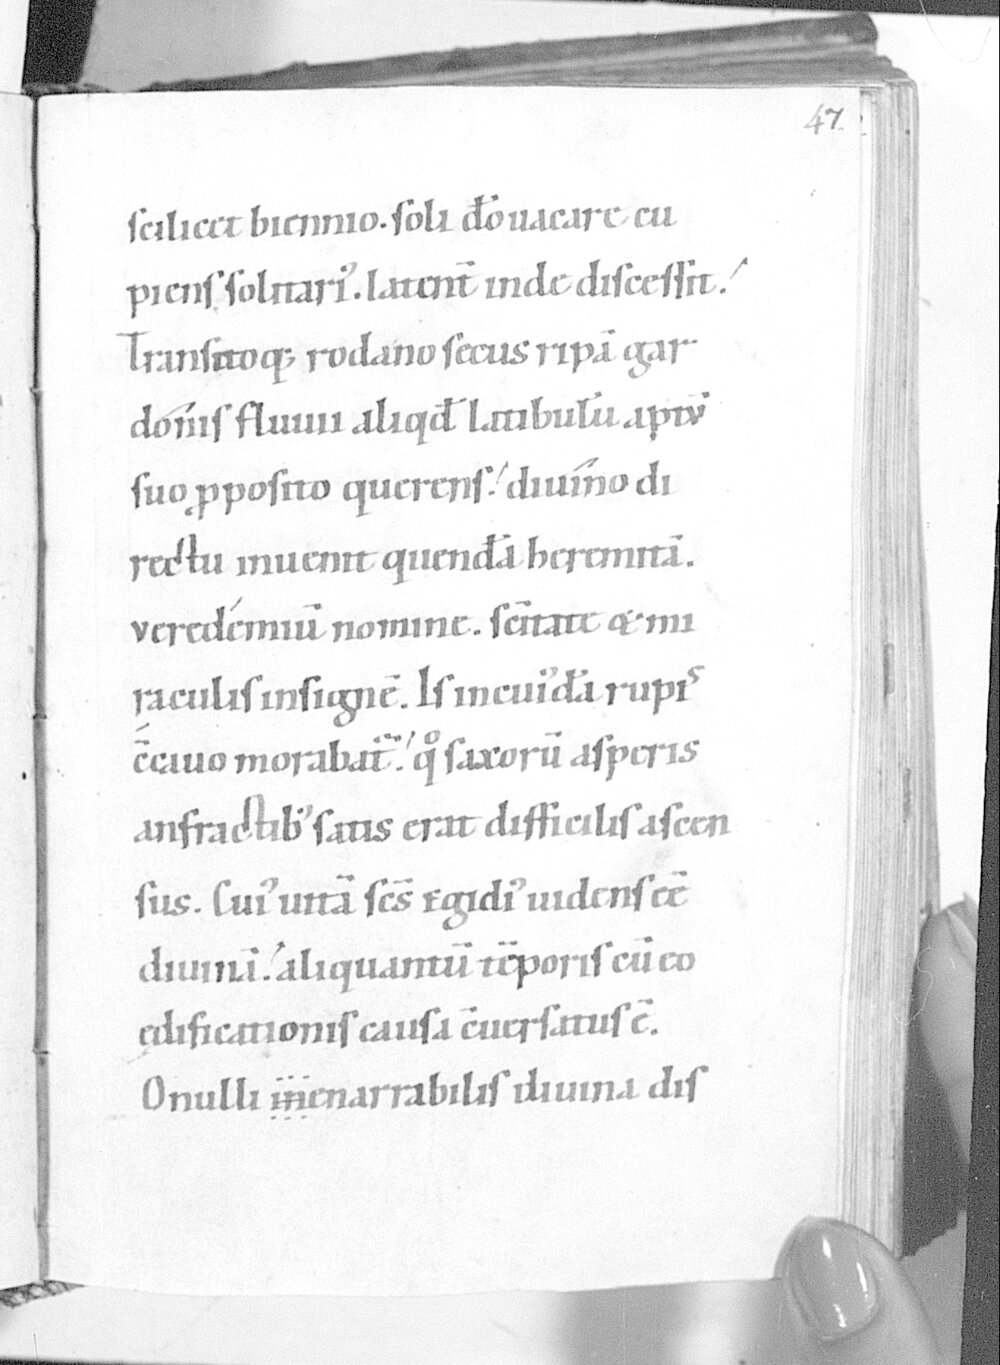 47
scilicet biennio. soli dō uacare cu
piens solitari᾽. latent̄ inde discessit.
Transitoq; rodano secus ripā gar
donis fluuii aliqd̄ latibulū aptū
suo ꝓposito querens. diuino di
rectu inuenit quendā heremitā.
veredemiū nomine. sc̄itate & mi
raculis insignē. Is in cui᾽dā rupis
c̄cauo morabat᷑. qͦ saxorū asperis
anfractib᾽ satis erat difficilis ascen
sus. Cui᾽ uitā sc̄s egidi᾽ uidens eē
diuinā. aliquantū tēporis cū eo
edificationis causa c̄uersatus ē.
O nulli inenarrabilis diuina dis